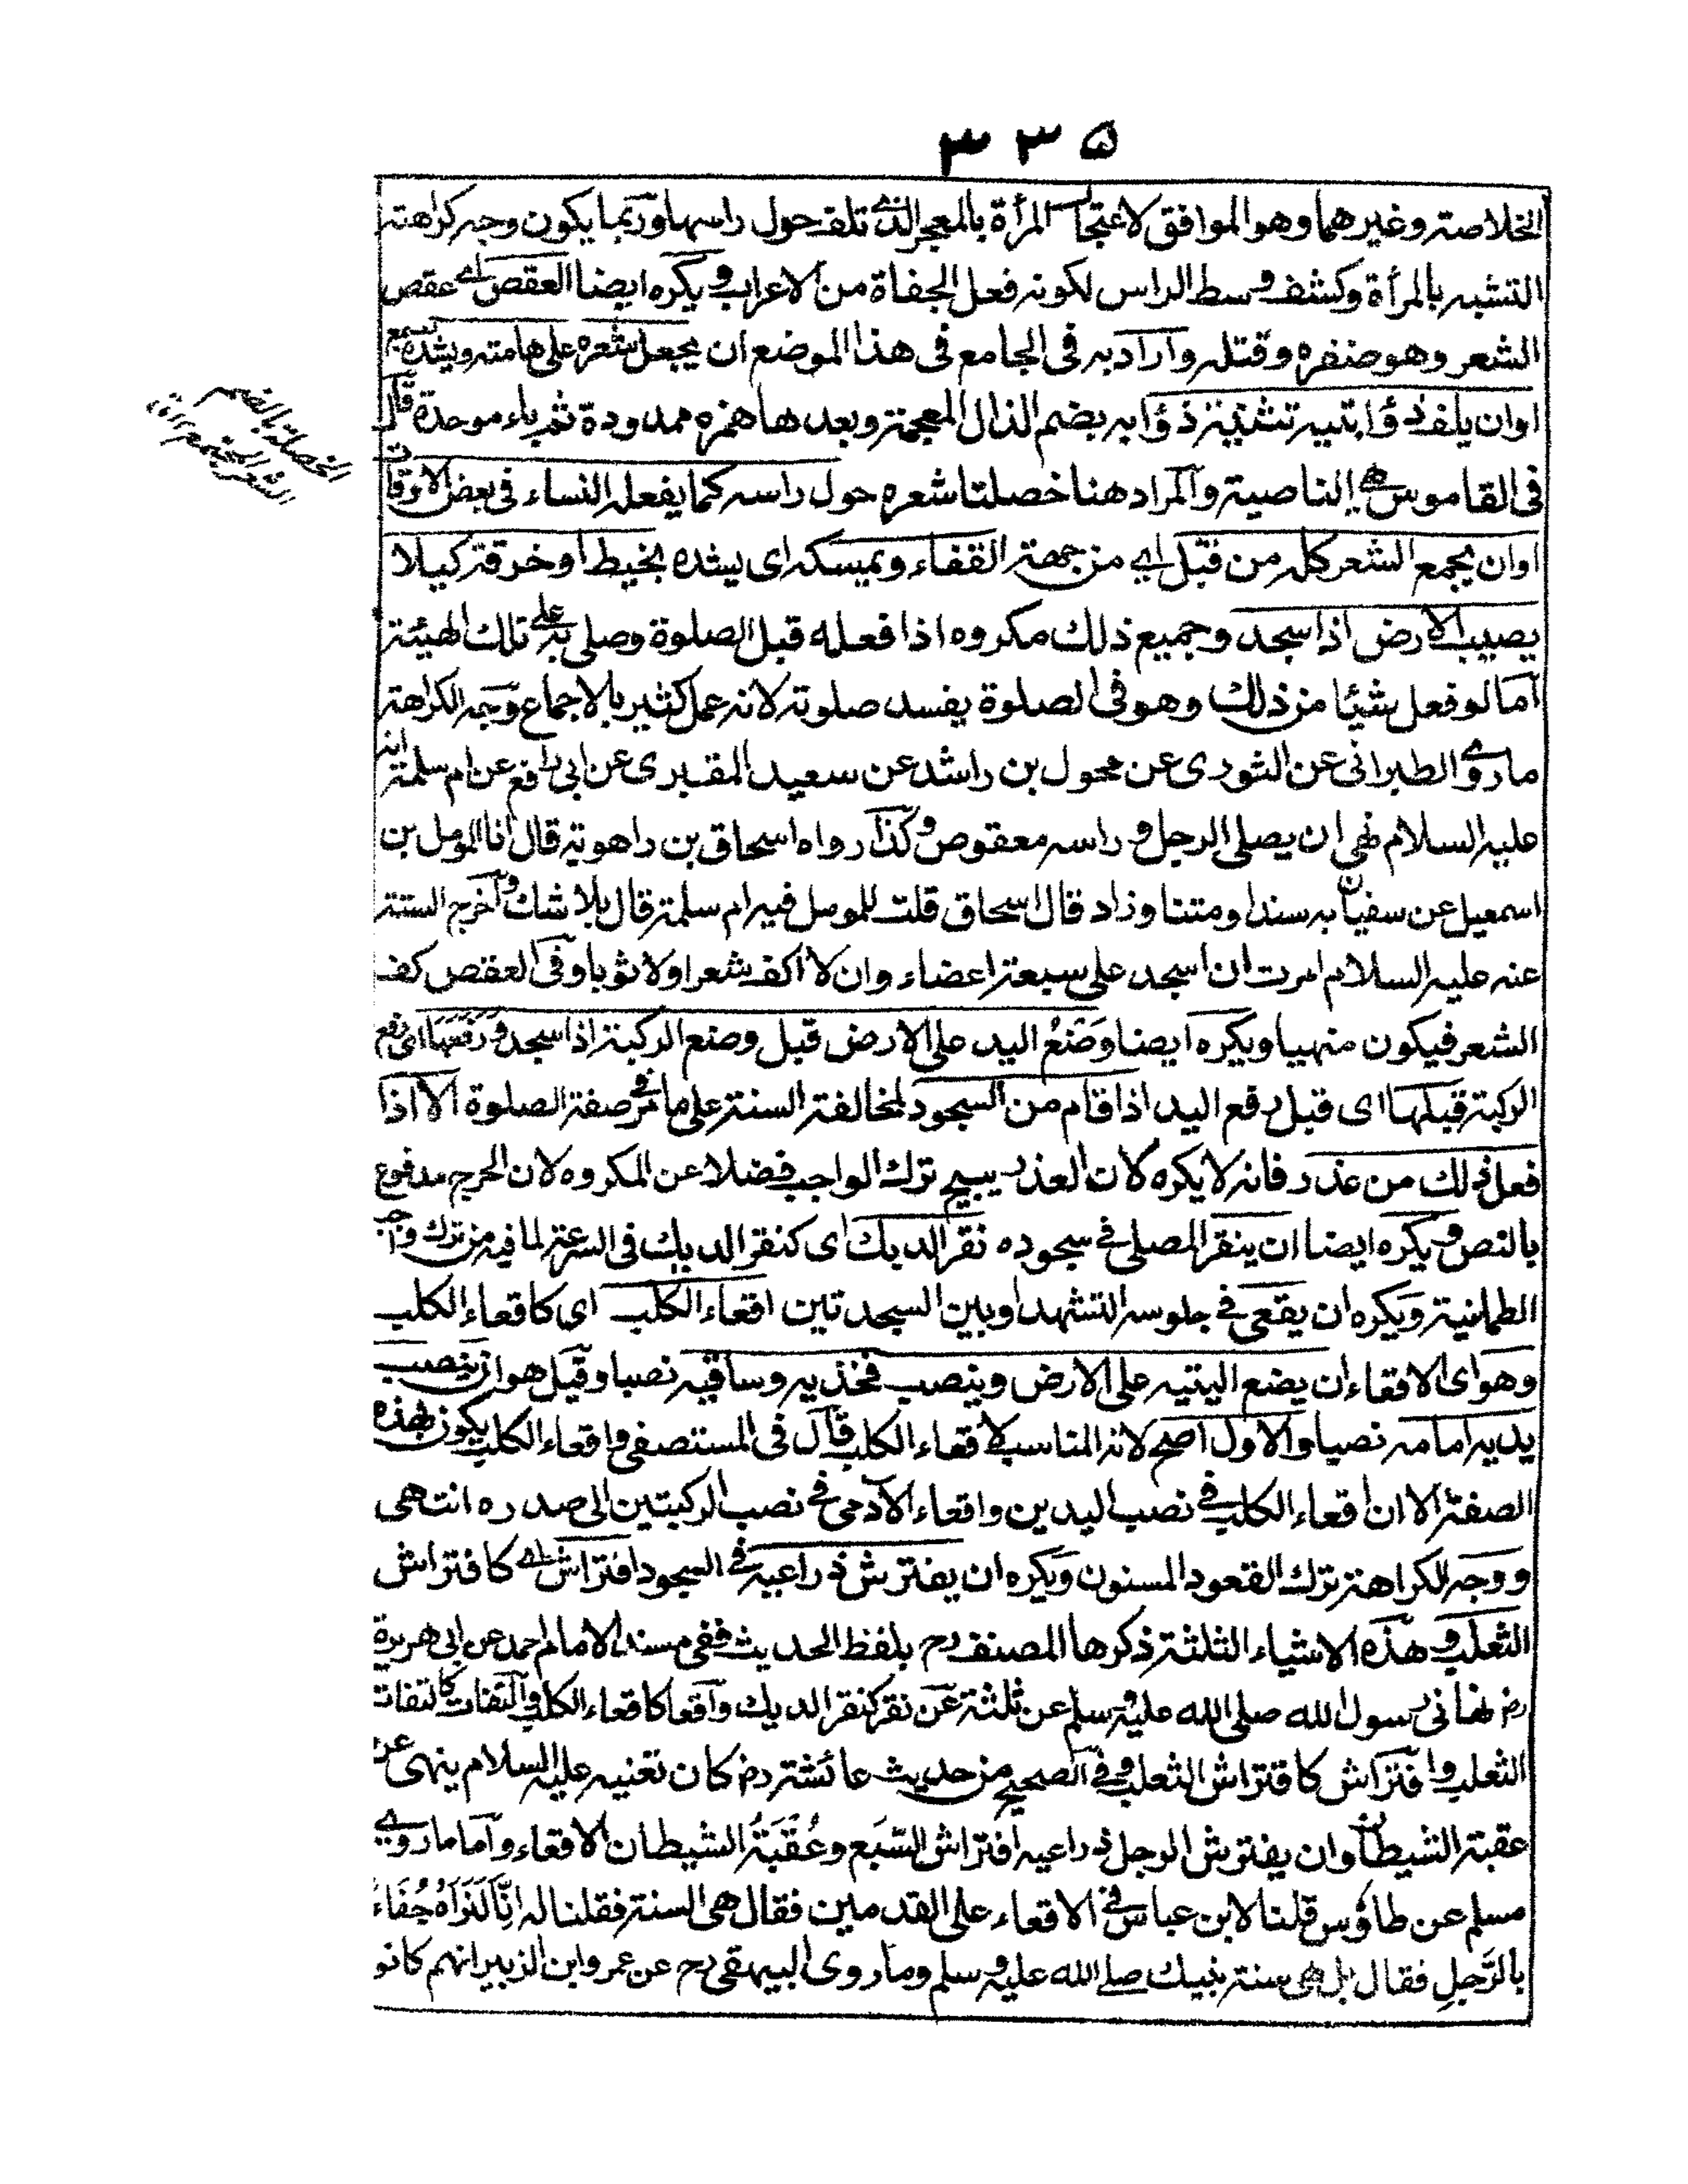 ٣٣٥
الخلاصة وغيرهما وهو الموافق لاعتجار المرأة بالمعجر الذي تلف حول راسها وربما يكون وجه كراهته
التشبه بالمرأة وكشف وسط الراس لكونه فعل الجفاة من الاعراب ويكره ايضا العقص اي عقص
الشعر وهو ضفره وفتله واراد به فى الجامع فى هذا الموضع ان يجعل شعره على هامته ويشده بصمغ
اوان يلف ذؤابتيه تثنية ذؤابه بضم الذال المعجمة وبعدها همزه ممدودة ثم باء موحدة قال
فى القاموس هي الناصية والمراد هنا خصلتا شعره حول راسه كما يفعله النساء فى بعض الاوقات
اوان يجمع الشعر كله من قبل اي من جهة القفاء ويمسكه اى يشده بخيط او خرقة كيلا
يصيب الارض اذا سجد وجميع ذلك مكروه اذا فعله قبل الصلوة وصلى به على تلك الهيئة
اما لو فعل شيئا من ذلك وهو فى الصلوة يفسد صلوته لانه عمل كثير بالاجماع ووجه الكراهة
ما روي الطبرانى عن الثورى عن محول بن راشد عن سعيد المقبرى عن ابى رافع عن ام سلمة انه
عليه السلام نهى ان يصلى الرجل و راسه معقوص وكذا رواه اسحاق بن راهويه قال انا الموصل بن
اسمعيل عن سفيان به سندا ومتنا وزاد قال اسحاق قلت للموصل فيه ام سلمة قال بلا شك واخرج الستة
عنه عليه السلام امرت ان اسجد على سبعة اعضاء وان لا اكف شعرا ولا ثوبا وفى العقص كف
الشعر فيكون منهيا ويكره ايضا وَضْعُ اليد على الارض قبل وضع الركبة اذا سجد ورفعها اى رفع
الركبة قبلها اى قبل رفع اليد اذا قام من السجود لمخالفة السنة على ما مر فى صفة الصلوة الا اذا
فعل ذلك من عذر فانه لا يكره لان العذر يبيح ترك الواجب فضلا عن المكروه لان الحرج مدفوع
بالنص ويكره ايضا ان ينقر المصلى في سجوده نقر الديك اى كنقر الديك فى السرعة لما فيه من ترك واجب
الطمانية ويكره ان يقعى في جلوسه التشهد او بين السجدتين اقعاء الكلب اى كاقعاء الكلب
وهو اى الاقعاء ان يضع اليتيه على الارض وينصب فخذيه وساقيه نصبا وقيل هو ان ينصب
يديه امامه نصبا والاول اصح لانه المناسب لاقعاء الكلب قال فى المستصفى واقعاء الكلب يكون بهذه
الصفة الا ان اقعاء الكلب في نصب اليدين واقعاء الآدمى في نصب الركبتين الى صدره انتهى
ووجه الكراهة ترك القعود المسنون ويكره ان يفترش ذراعيه في السجود افتراش اي كافتراش
الثعلب وهذه الاشياء الثلثة ذكرها المصنف رح بلفظ الحديث ففى مسند الامام احمد عن ابى هريرة
رض نهانى رسول الله صلى الله عليه وسلم عن ثلثة عن نقر كنقر الديك واقعا كاقعاء الكلب والتفات كالتفات
الثعلب وافتراش كافتراش الثعلب وفي الصحيح من حديث عائشة رض كان تعنيه عليه السلام ينهى عن
عقبة الشيطان وان يفترش الرجل ذراعيه افتراش السَّبَع وعُقْبَةُ الشيطان الاقعاء واما ما روي
مسلم عن طاؤس قلنا لابن عباس في الاقعاء على القدمين فقال هى السنة فقلنا له اِنَّا لَنَرَاهُ جُفَاءً
بالرَّجلِ فقال بل هى سنة نبيك صلى الله عليه وسلم وما روى البيهقى رح عن عمر وابن الزبير انهم كانو
الخصلة بالضم
الشعر المجتمع